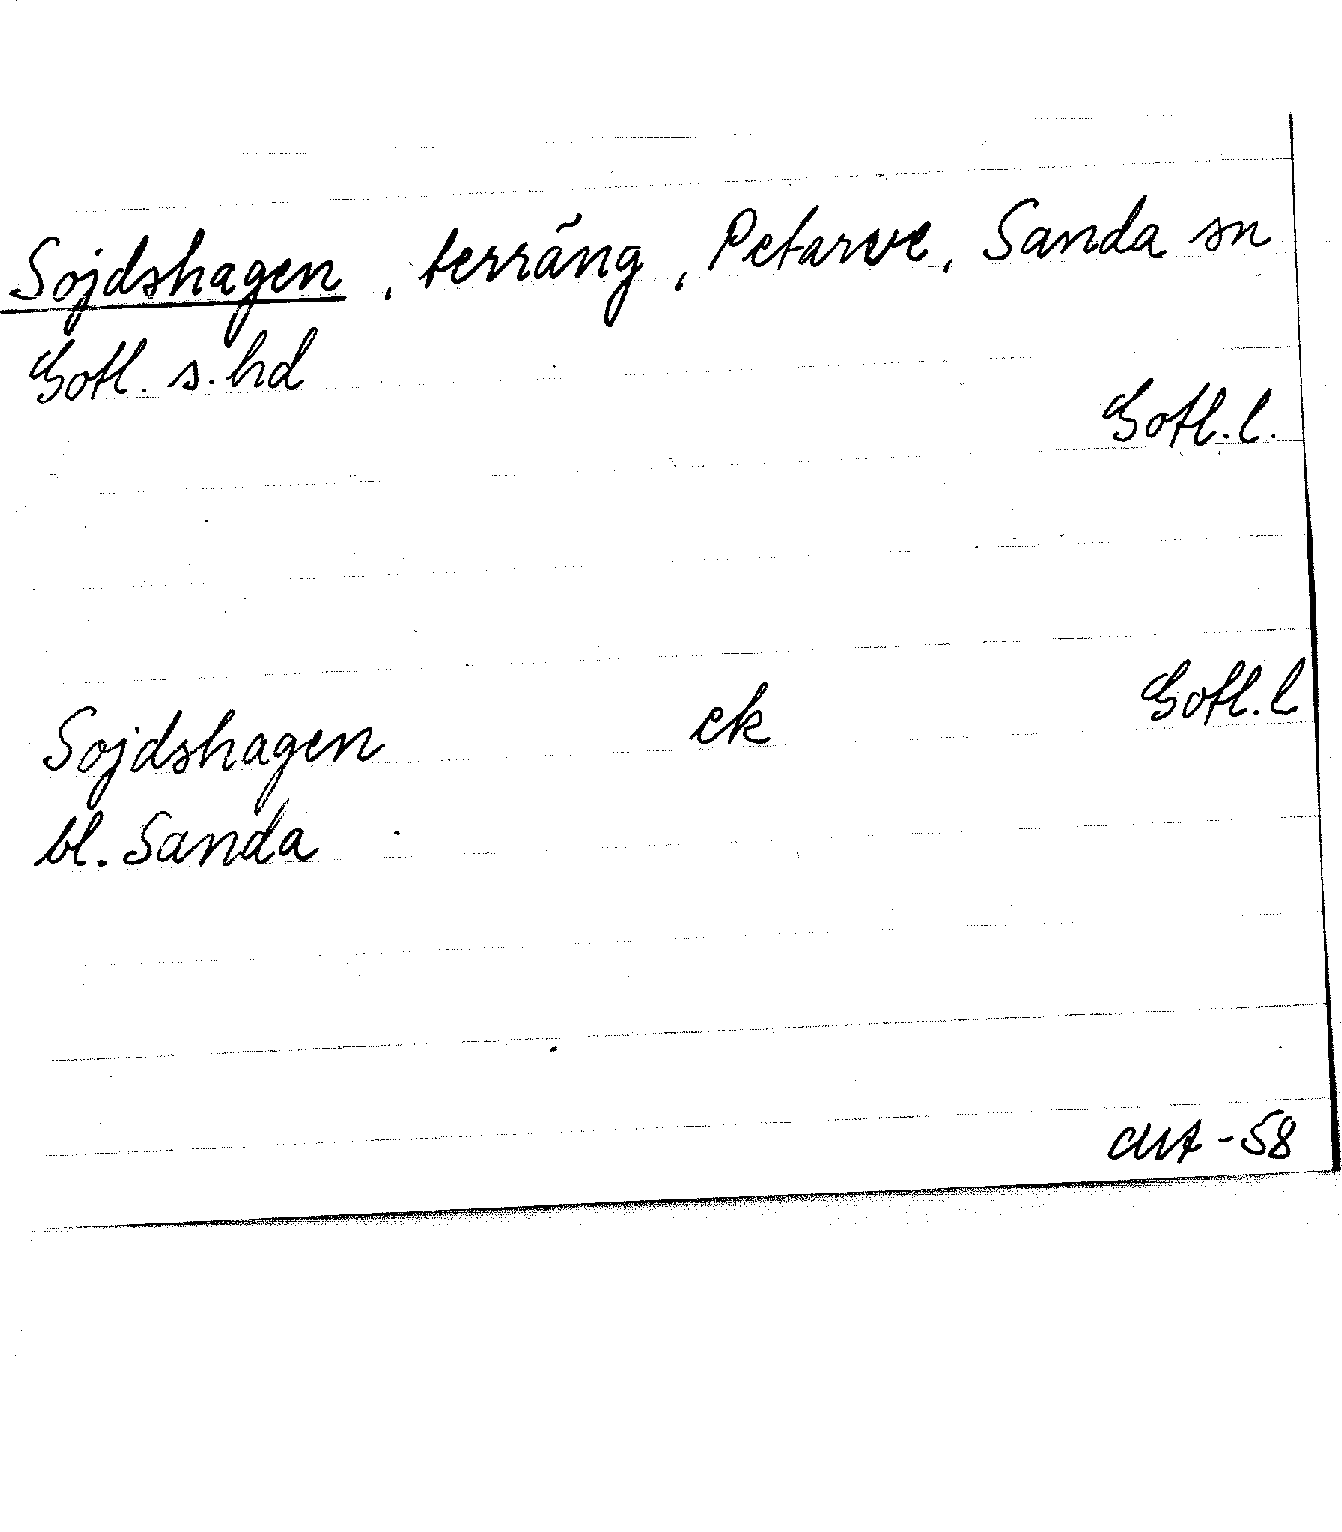 Sojdshagen, terräng, Petarve, Sanda sn
Gotl. s. hd
Gotl. l.
Sojdshagen ek Gotl. l
bl. Sanda
-58